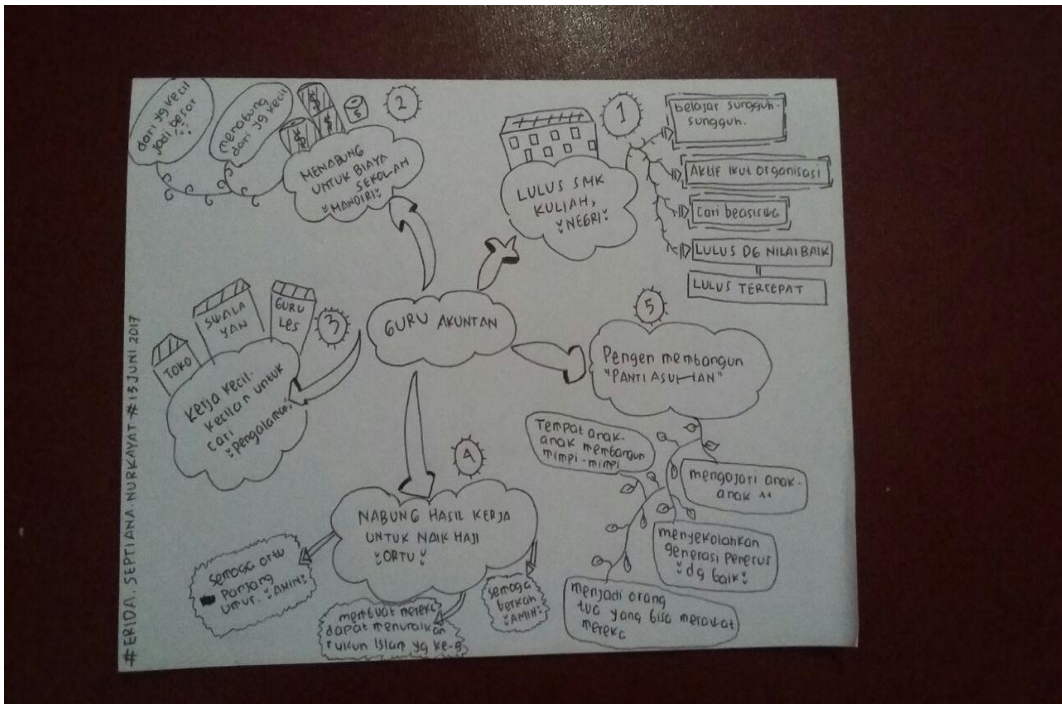 GURU AKUNTAN
1
LULUS SMK
KULIAH,
NEGRI
belajar sungguh-
sungguh.
AKTIF IKUT ORGANISASI
Cari beasiswa
LULUS DG NILAI BAIK
LULUS TERCEPAT
2
MENABUNG
UNTUK BIAYA
SEKOLAH
MANDIRI
menabung
dari yg kecil
dari yg kecil
jadi besar
3
TOKO
SWALA
YAN
GURU
LES
Kerja kecil-
kecilan untuk
cari
pengalaman
4
NABUNG HASIL KERJA
UNTUK NAIK HAJI
ORTU
semoga ortu
Panjang
Umur. AMIN
membuat mereka
dapat menunaikan
rukun Islam yg ke-5
semoga
berkah
AMIN
5
Pengen membangun
"PANTI ASUHAN"
Tempat anak-
anak membangun
mimpi-mimpi
mengajari anak-
anak ^^
menyekolahkan
generasi penerus
dg baik
menjadi orang
tua yang bisa merawat
mereka
#ERIDA.SEPTIANA.NURKAYAT #15 JUNI 2017